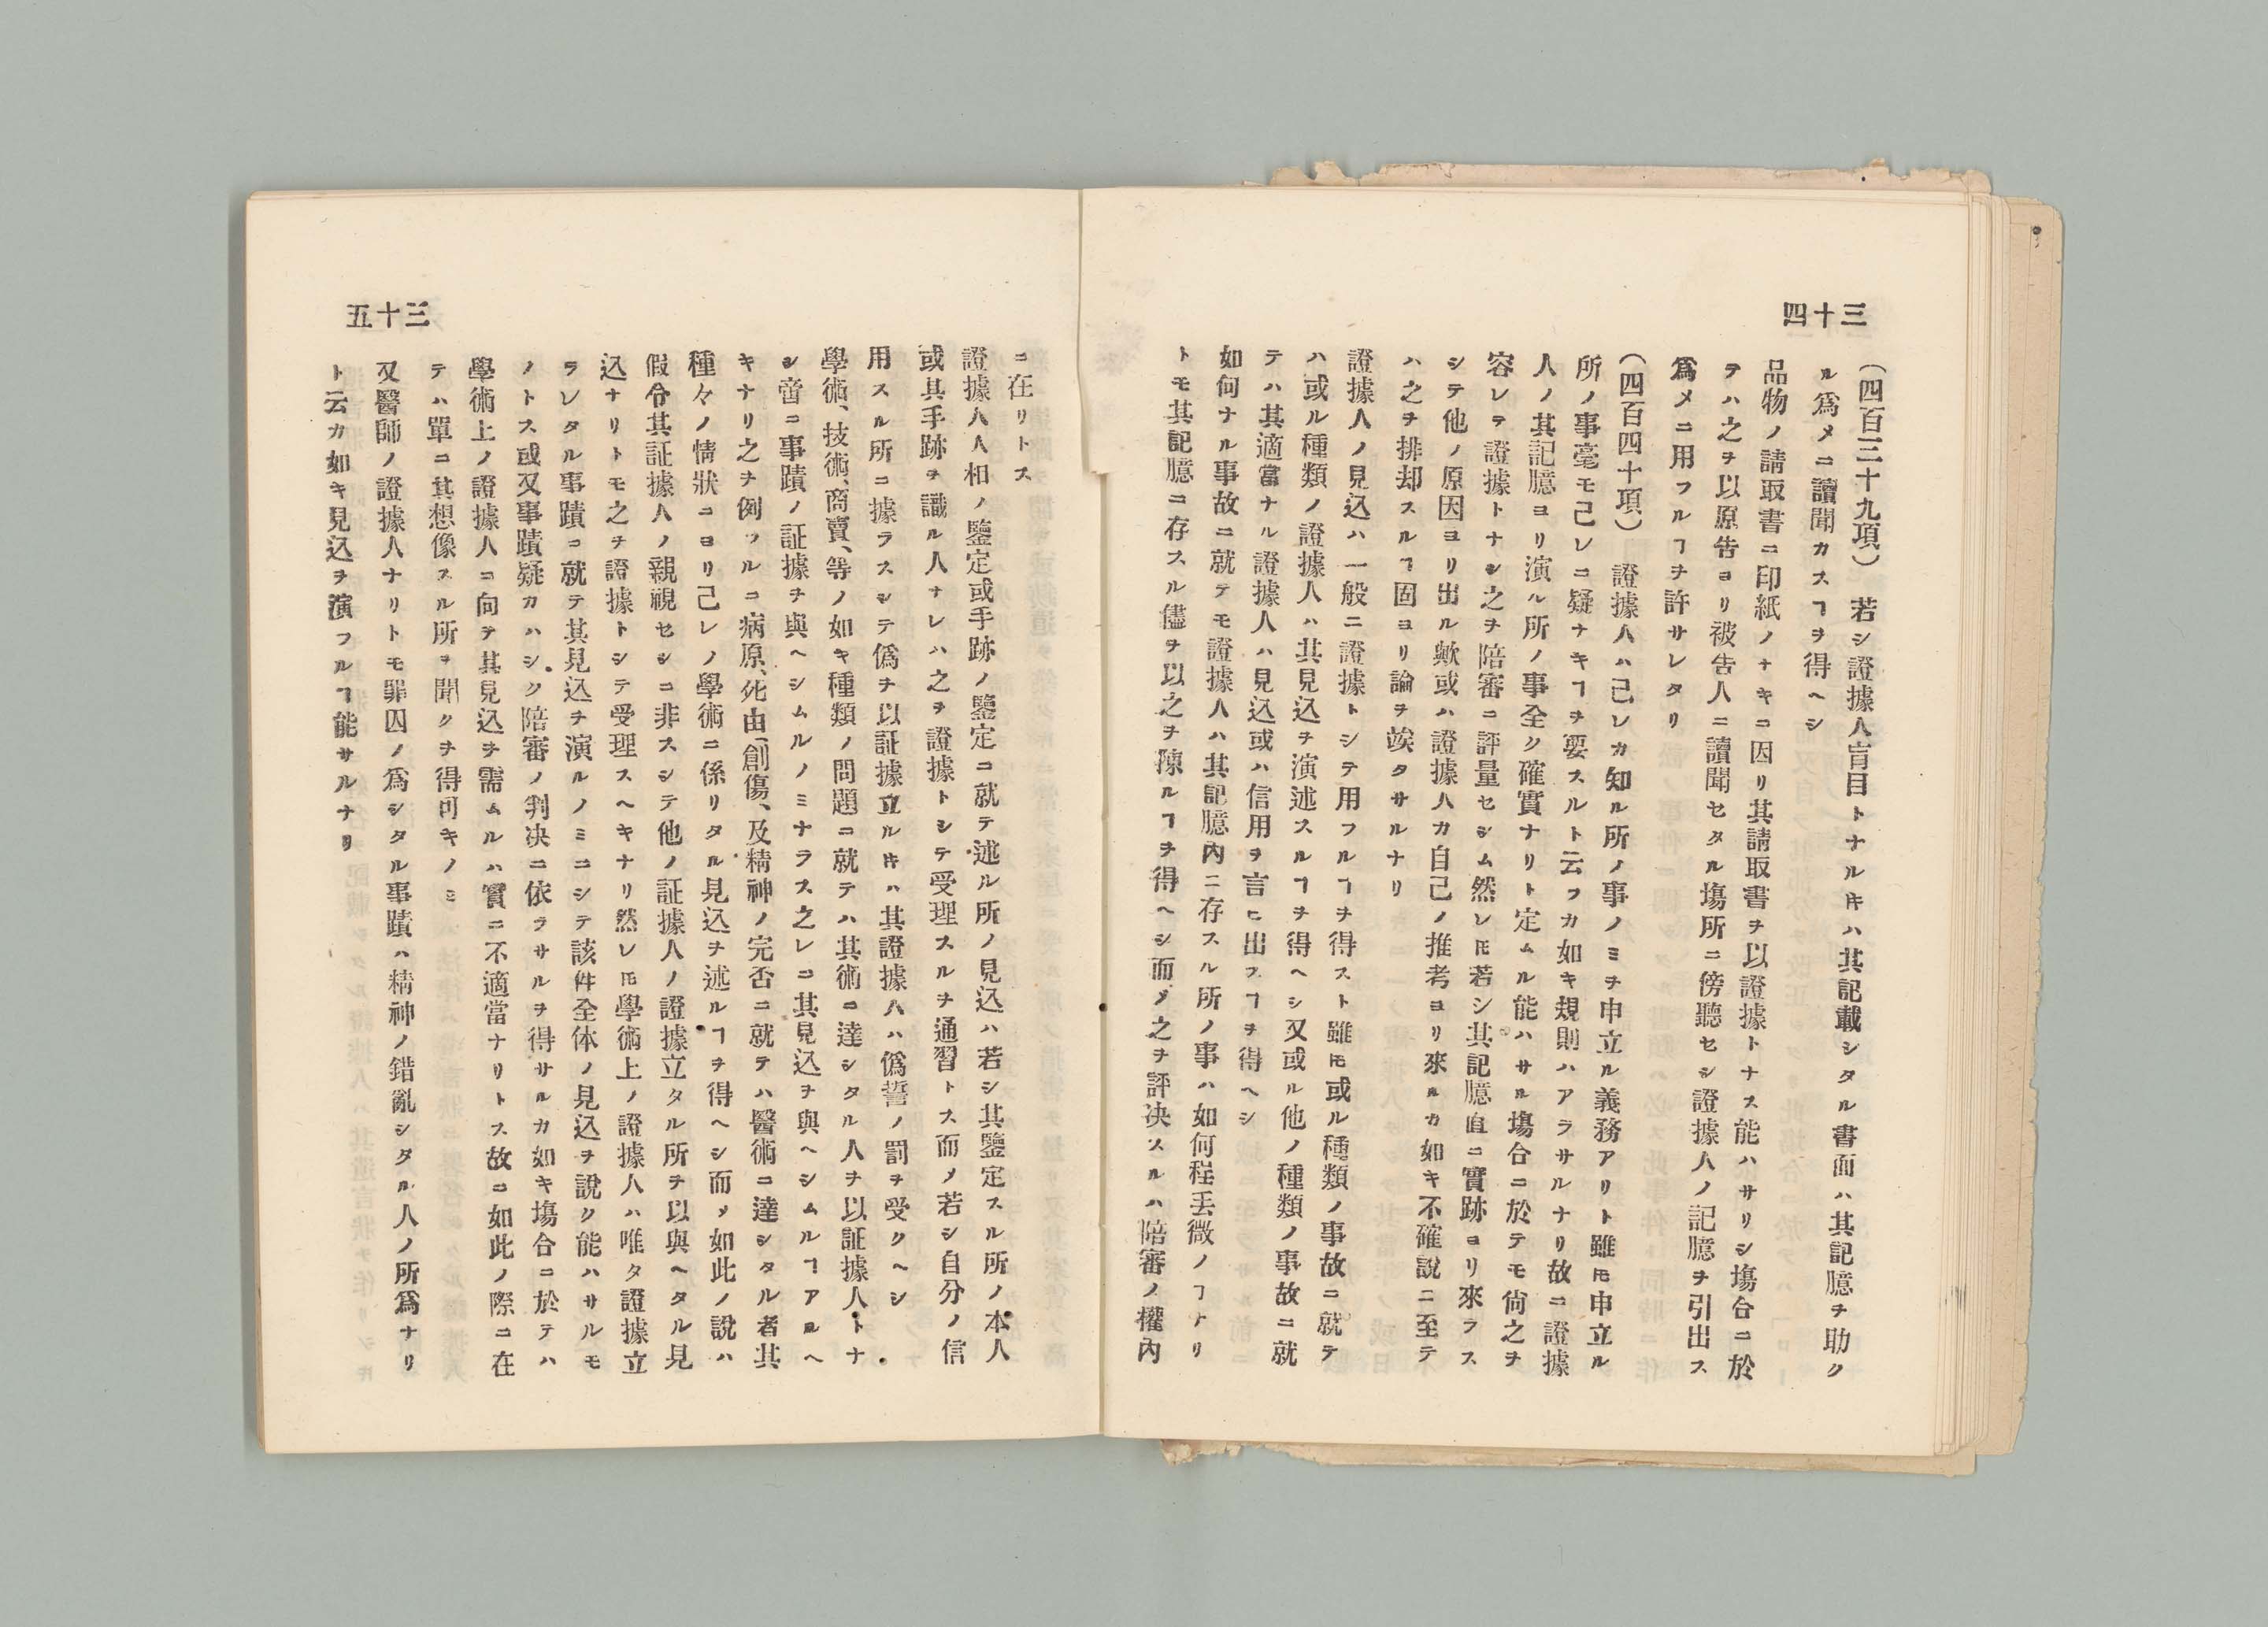 三十四
(四百三十九項) 若シ證據人盲目トナルㇳキハ其記載シタル書面ハ其記臆ヲ助ク
ル爲メニ讀聞カスヿヲ得ヘシ
品物ノ請取書ニ印紙ノナキニ因リ其請取書ヲ以證據トナス能ハサリシ塲合ニ於
テハ之ヲ以原告ヨリ被告人ニ讀聞セタル塲所ニ傍聽セシ證據人ノ記臆ヲ引出ス
爲メニ用フルヿヲ許サレタリ
(四百四十項) 證據人ハ己レカ知ル所ノ事ノミヲ申立ル義務アリト雖𪜈申立ル
所ノ事毫モ己レニ疑ナキヿヲ要スルト云フカ如キ規則ハアラサルナリ故ニ證據
人ノ其記臆ヨリ演ル所ノ事全ク確實ナリト定ムル能ハサル塲合ニ於テモ尙之ヲ
容レテ證據トナシ之ヲ陪審ニ評量セシム然レ𪜈若シ其記臆直ニ實跡ヨリ來ラス
シテ他ノ原因ヨリ出ル歟或ハ證據人カ自己ノ推考ヨリ來ルカ如キ不確說ニ至テ
ハ之ヲ排却スルヿ固ヨリ論ヲ竢タサルナリ
證據人ノ見込ハ一般ニ證據トシテ用フルヿヲ得スト雖𪜈或ル種類ノ事故ニ就テ
ハ或ル種類ノ證據人ハ其見込ヲ演述スルヿヲ得ヘシ又或ル他ノ種類ノ事故ニ就
テハ其適當ナル證據人ハ見込或ハ信用ヲ言ヒ出スヿヲ得ヘシ
如何ナル事故ニ就テモ證據人ハ其記臆內ニ存スル所ノ事ハ如何程丟微ノヿナリ
トモ其記臆ニ存スル儘ヲ以之ヲ陳ルヿヲ得ヘシ而〆之ヲ評決スルハ陪審ノ權內
三十五
ニ在リトス
證據人人相ノ鑒定或手跡ノ鑒定ニ就テ述ル所ノ見込ハ若シ其鑒定スル所ノ本人
或其手跡ヲ識ル人ナレハ之ヲ證據トシテ受理スルヲ通習トス而〆若シ自分ノ信
用スル所ニ據ラスシテ僞ヲ以証據立ルㇳキハ其證據人ハ僞誓ノ罰ヲ受クヘシ
學術、技術、商賣、等ノ如キ種類ノ問題ニ就テハ其術ニ達シタル人ヲ以証據人トナ
シ啻ニ事蹟ノ証據ヲ與ヘシムルノミナラス之レニ其見込ヲ與ヘシムルヿアルヘ
キナリ之ヲ例フルニ病原、死由、創傷、及精神ノ完否ニ就テハ醫術ニ達シタル者其
種々ノ情狀ニヨリ己レノ學術ニ係リタル見込ヲ述ルヿヲ得ヘシ而〆如此ノ說ハ
假令其証據人ノ親視セシニ非スシテ他ノ証據人ノ證據立タル所ヲ以與ヘタル見
込ナリトモ之ヲ證據トシテ受理スヘキナリ然レ𪜈學術上ノ證據人ハ唯タ證據立
ラレタル事蹟ニ就テ其見込ヲ演ルノミニシテ該件全体ノ見込ヲ說ク能ハサルモ
ノトス或又事蹟疑カハシク陪審ノ判决ニ依ラサルヲ得サルカ如キ塲合ニ於テハ
學術上ノ證據人ニ向テ其見込ヲ需ムルハ實ニ不適當ナリトス故ニ如此ノ際ニ在
テハ單ニ其想像スル所ヲ聞クヲ得可キノミ
又醫師ノ證據人ナリトモ罪囚ノ爲シタル事蹟ハ精神ノ錯亂シタル人ノ所爲ナリ
ト云カ如キ見込ヲ演フルヿ能サルナリ